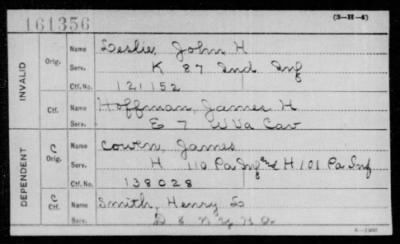 161356 (3-H-4)
INVALID
Orig. Name Leslie, John H
Serv. K 87 Ind Inf
Ctf. No. 121152
Ctf. Name Hoffman, James H
Serv. E 7 W Va Cav
DEPENDENT
C Orig. Name Cowen, James
Serv. H 110 Pa Inf & H 101 Pa Inf
Ctf. No. 138028
C Ctf. Name Smith, Henry
Serv. D 8 N.Y. H.A.